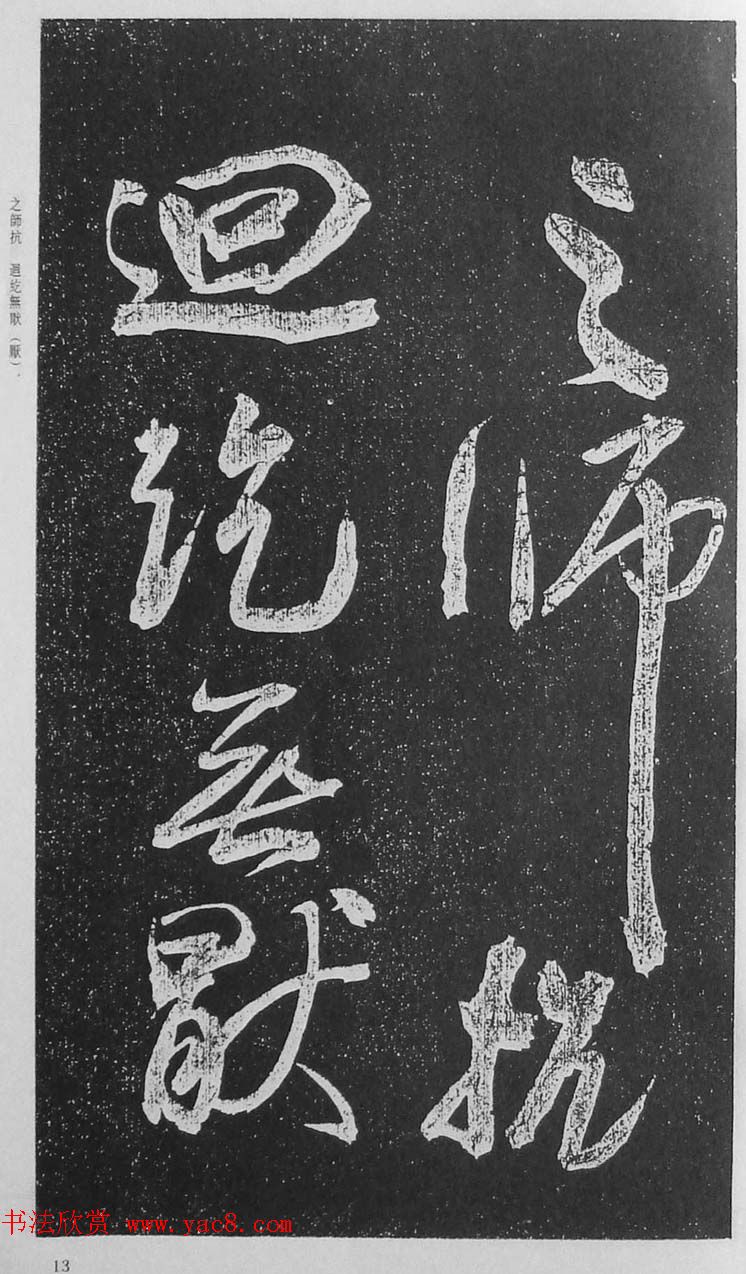 之師抗
迴紇無猒
之師抗 迴紇無猒（厭）、
书法欣赏 www.yac8.com
13